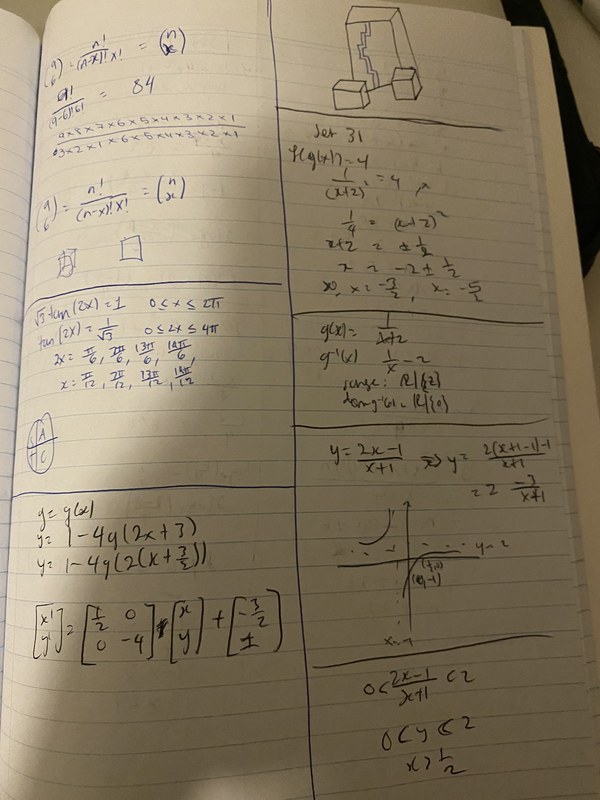 (9 6) = n!/(n-x)!x! = (n x)
9!/(9-6)!6! = 84
9×8×7×6×5×4×3×2×1/3×2×1×6×5×4×3×2×1
(9 6) = n!/(n-x)!x! = (n x)
√3 tan(2x) = 1 0≤x≤2π
tan(2x) = 1/√3 0≤2x≤4π
2x = π/6, 7π/6, 13π/6, 19π/6,
x = π/12, 7π/12, 13π/12, 19π/12
A
C
y = g(x)
y = 1-4g(2x+3)
y = 1-4g(2(x+3/2))
[x' y'] = [1/2 0 0 -4] [x y] + [-3/2 1]
Set 31
f(g(x)) = 4
1/(x+2)² = 4
1/4 = (x+2)²
x+2 = ± 1/2
x = -2 ± 1/2
x = -3/2, x = -5/2
g(x) = 1/x+2
g⁻¹(x) 1/x - 2
range: R\{2}
dom g⁻¹(x) = R\{0}
y = 2x-1/x+1 => y = 2(x+1-1)-1/x+1
= 2 -3/x+1
y=2
(½,0)
(0,-1)
x=-1
0<2x-1/x+1<2
0<y<2
x>1/2